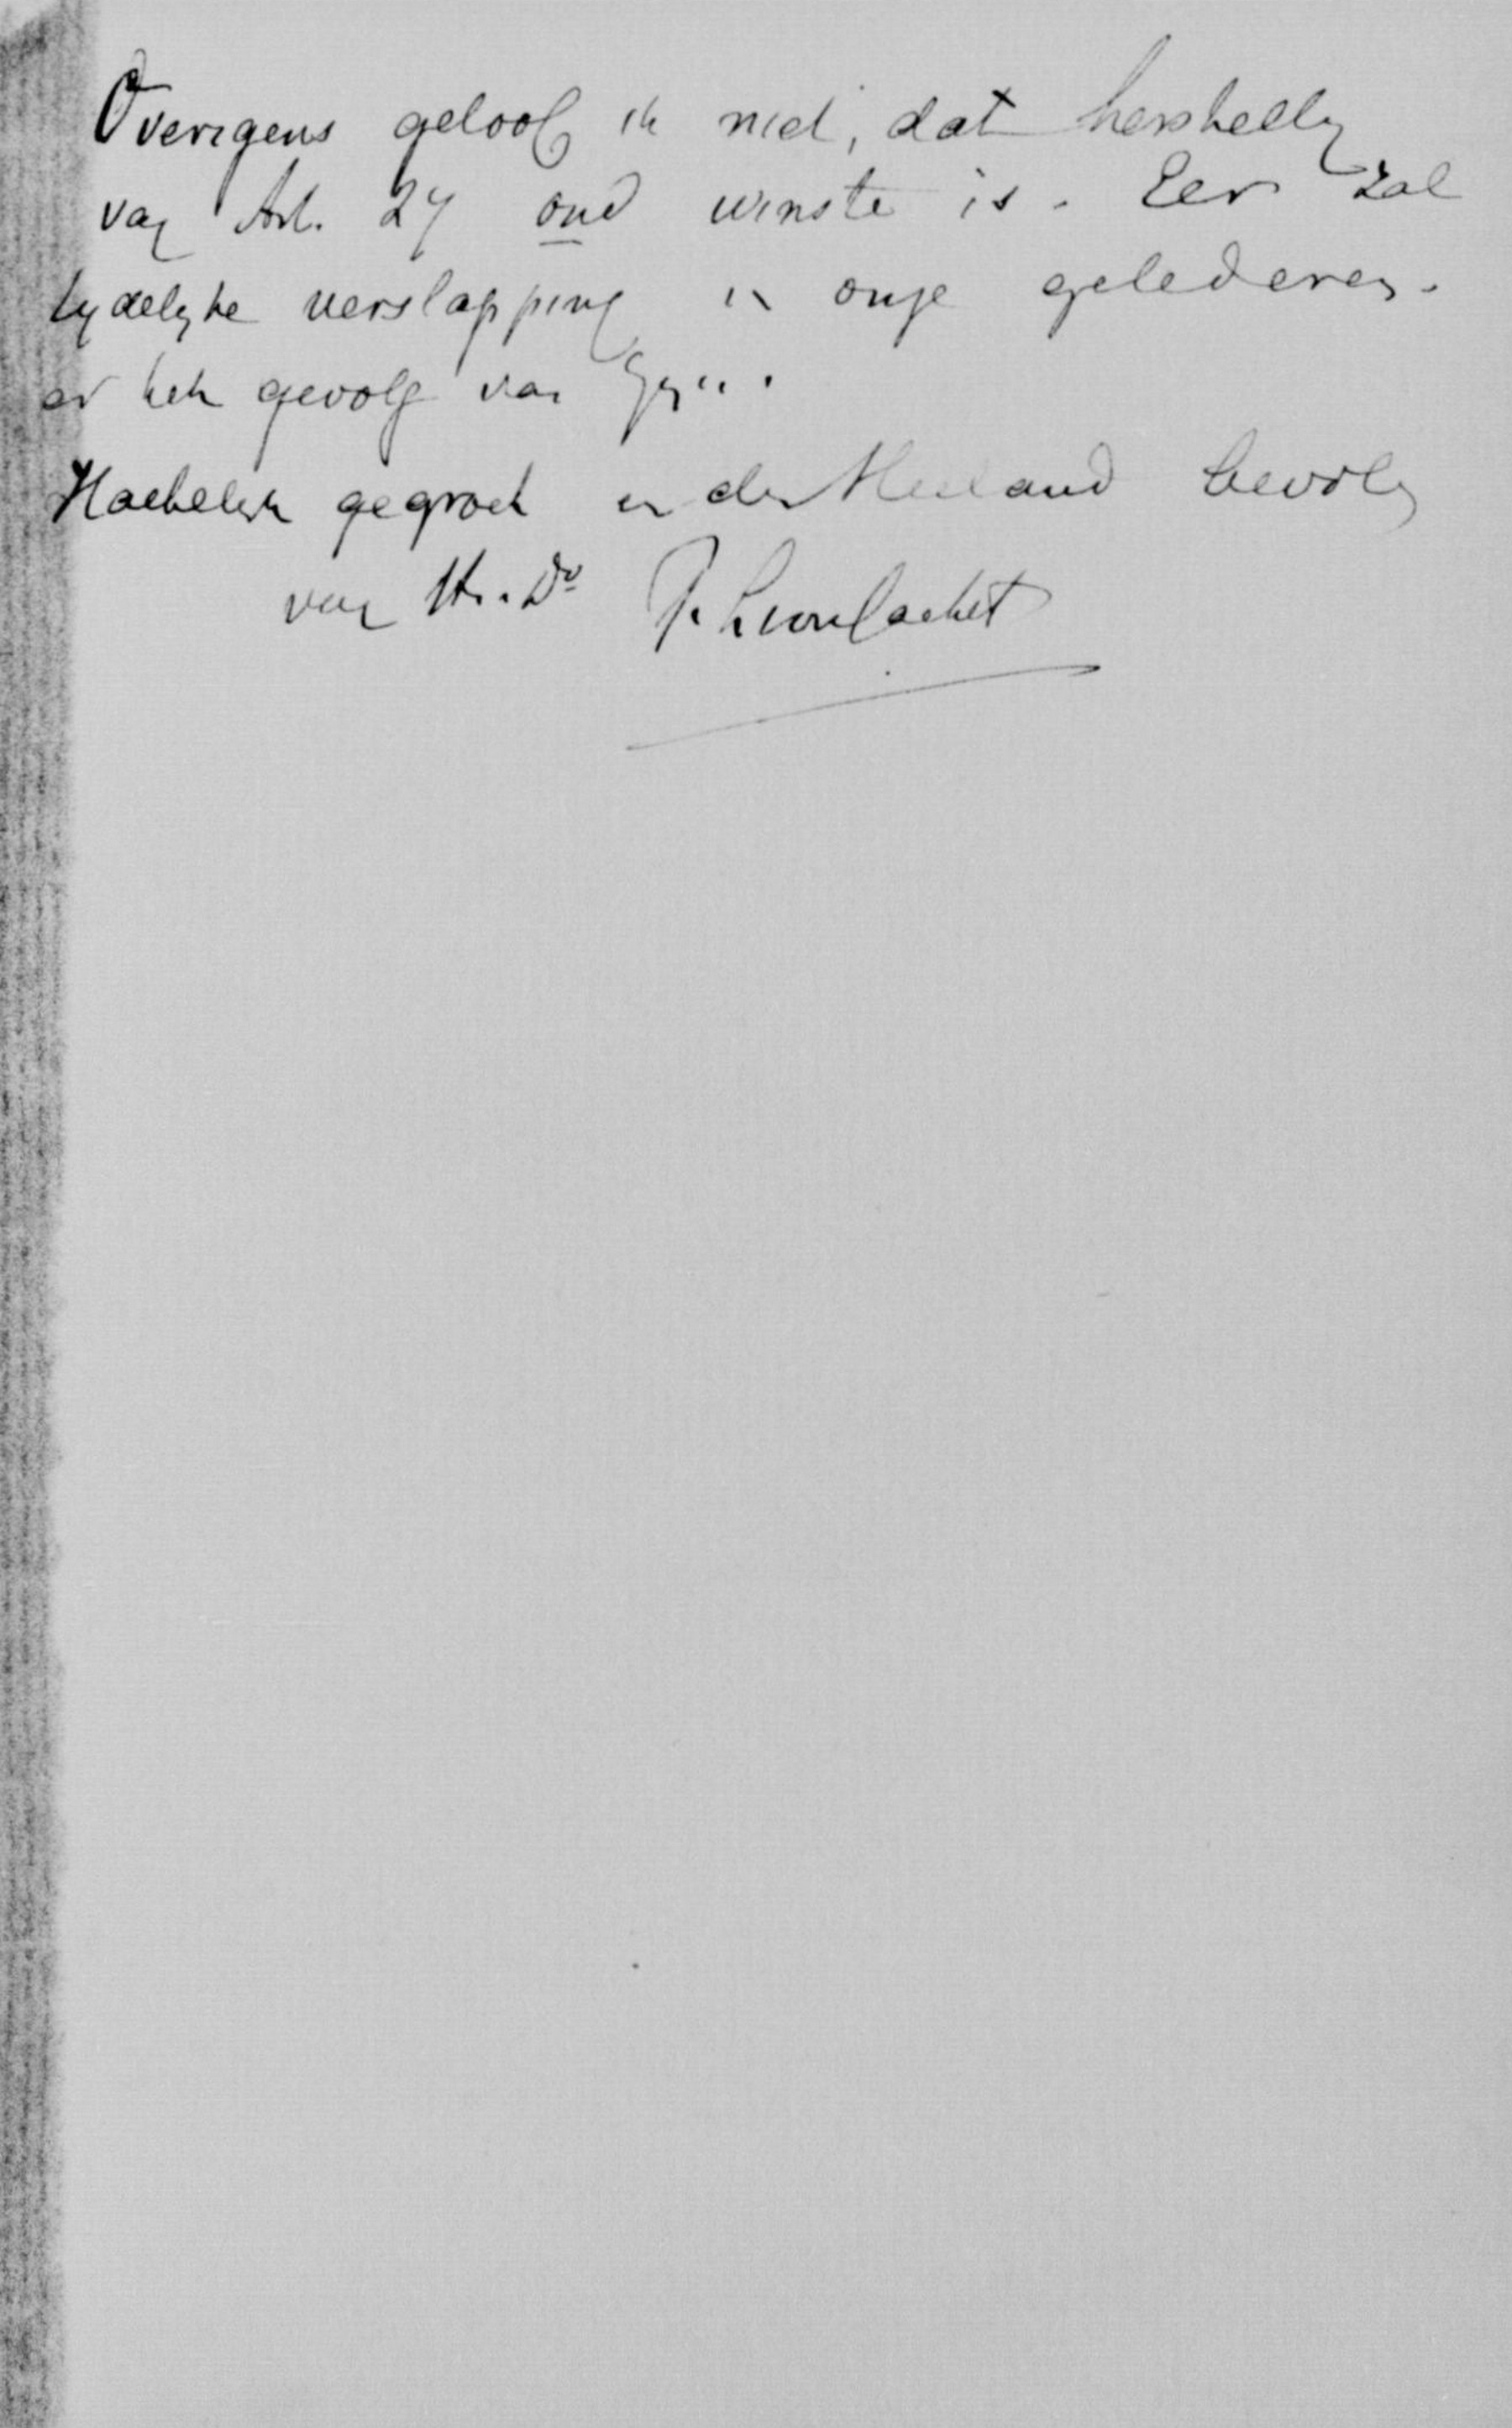 Overigens geloof ik niet, dat herstelling
van Art. 27 ons winste is. Eer zal
tydelyke verslapping in onze gelederen
er het gevolg van zyn.
Hartelyk gegroet en den Heiland bevolen
van Uw. Dv
F. Lion Cachet